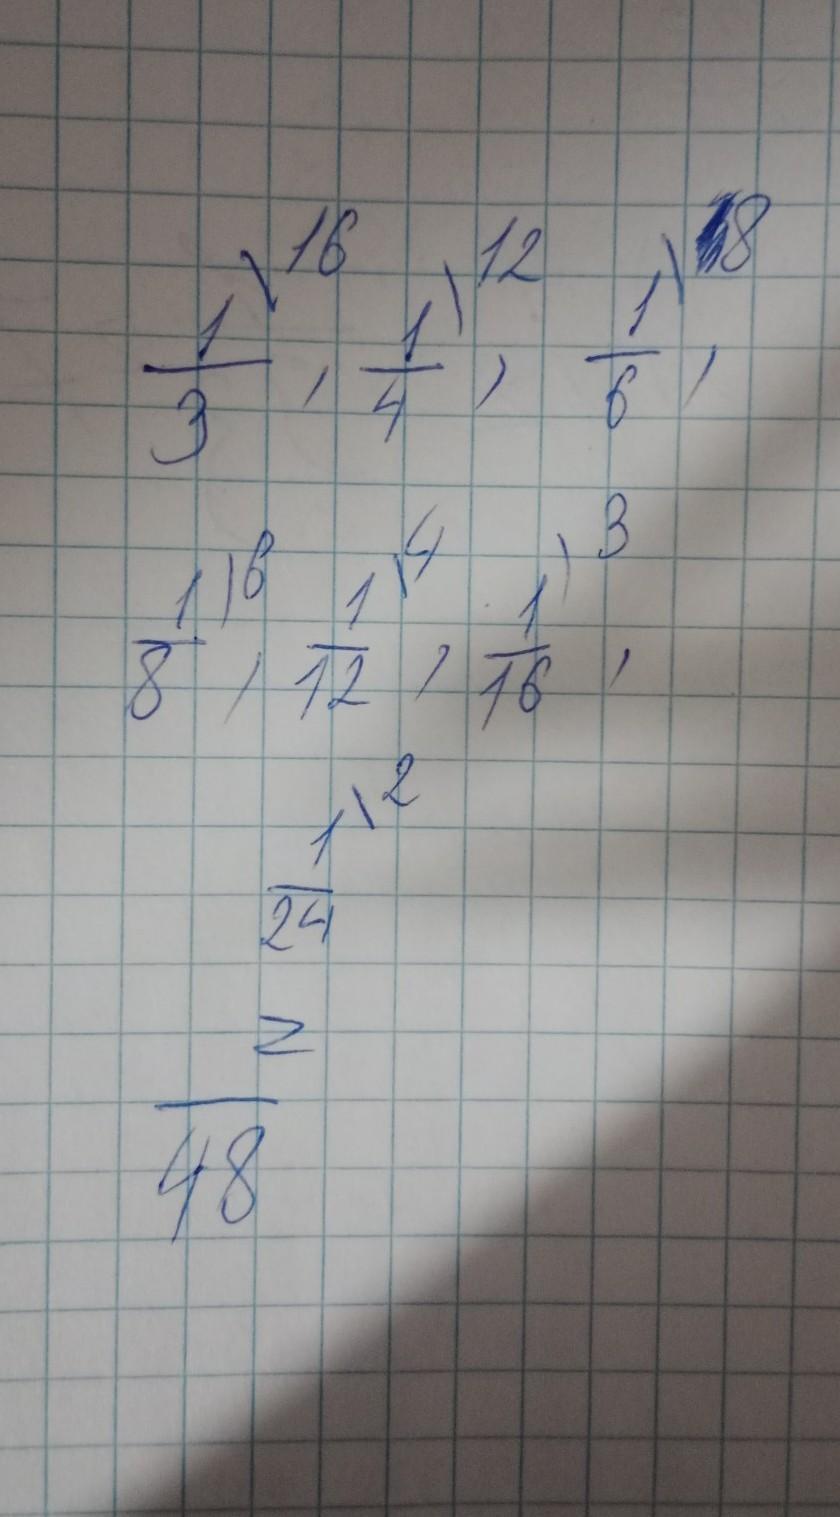 1/3 \16, 1/4 \12, 1/6 \8,
1/8 \6, 1/12 \4, 1/16 \3,
1/24 \2
=
/48